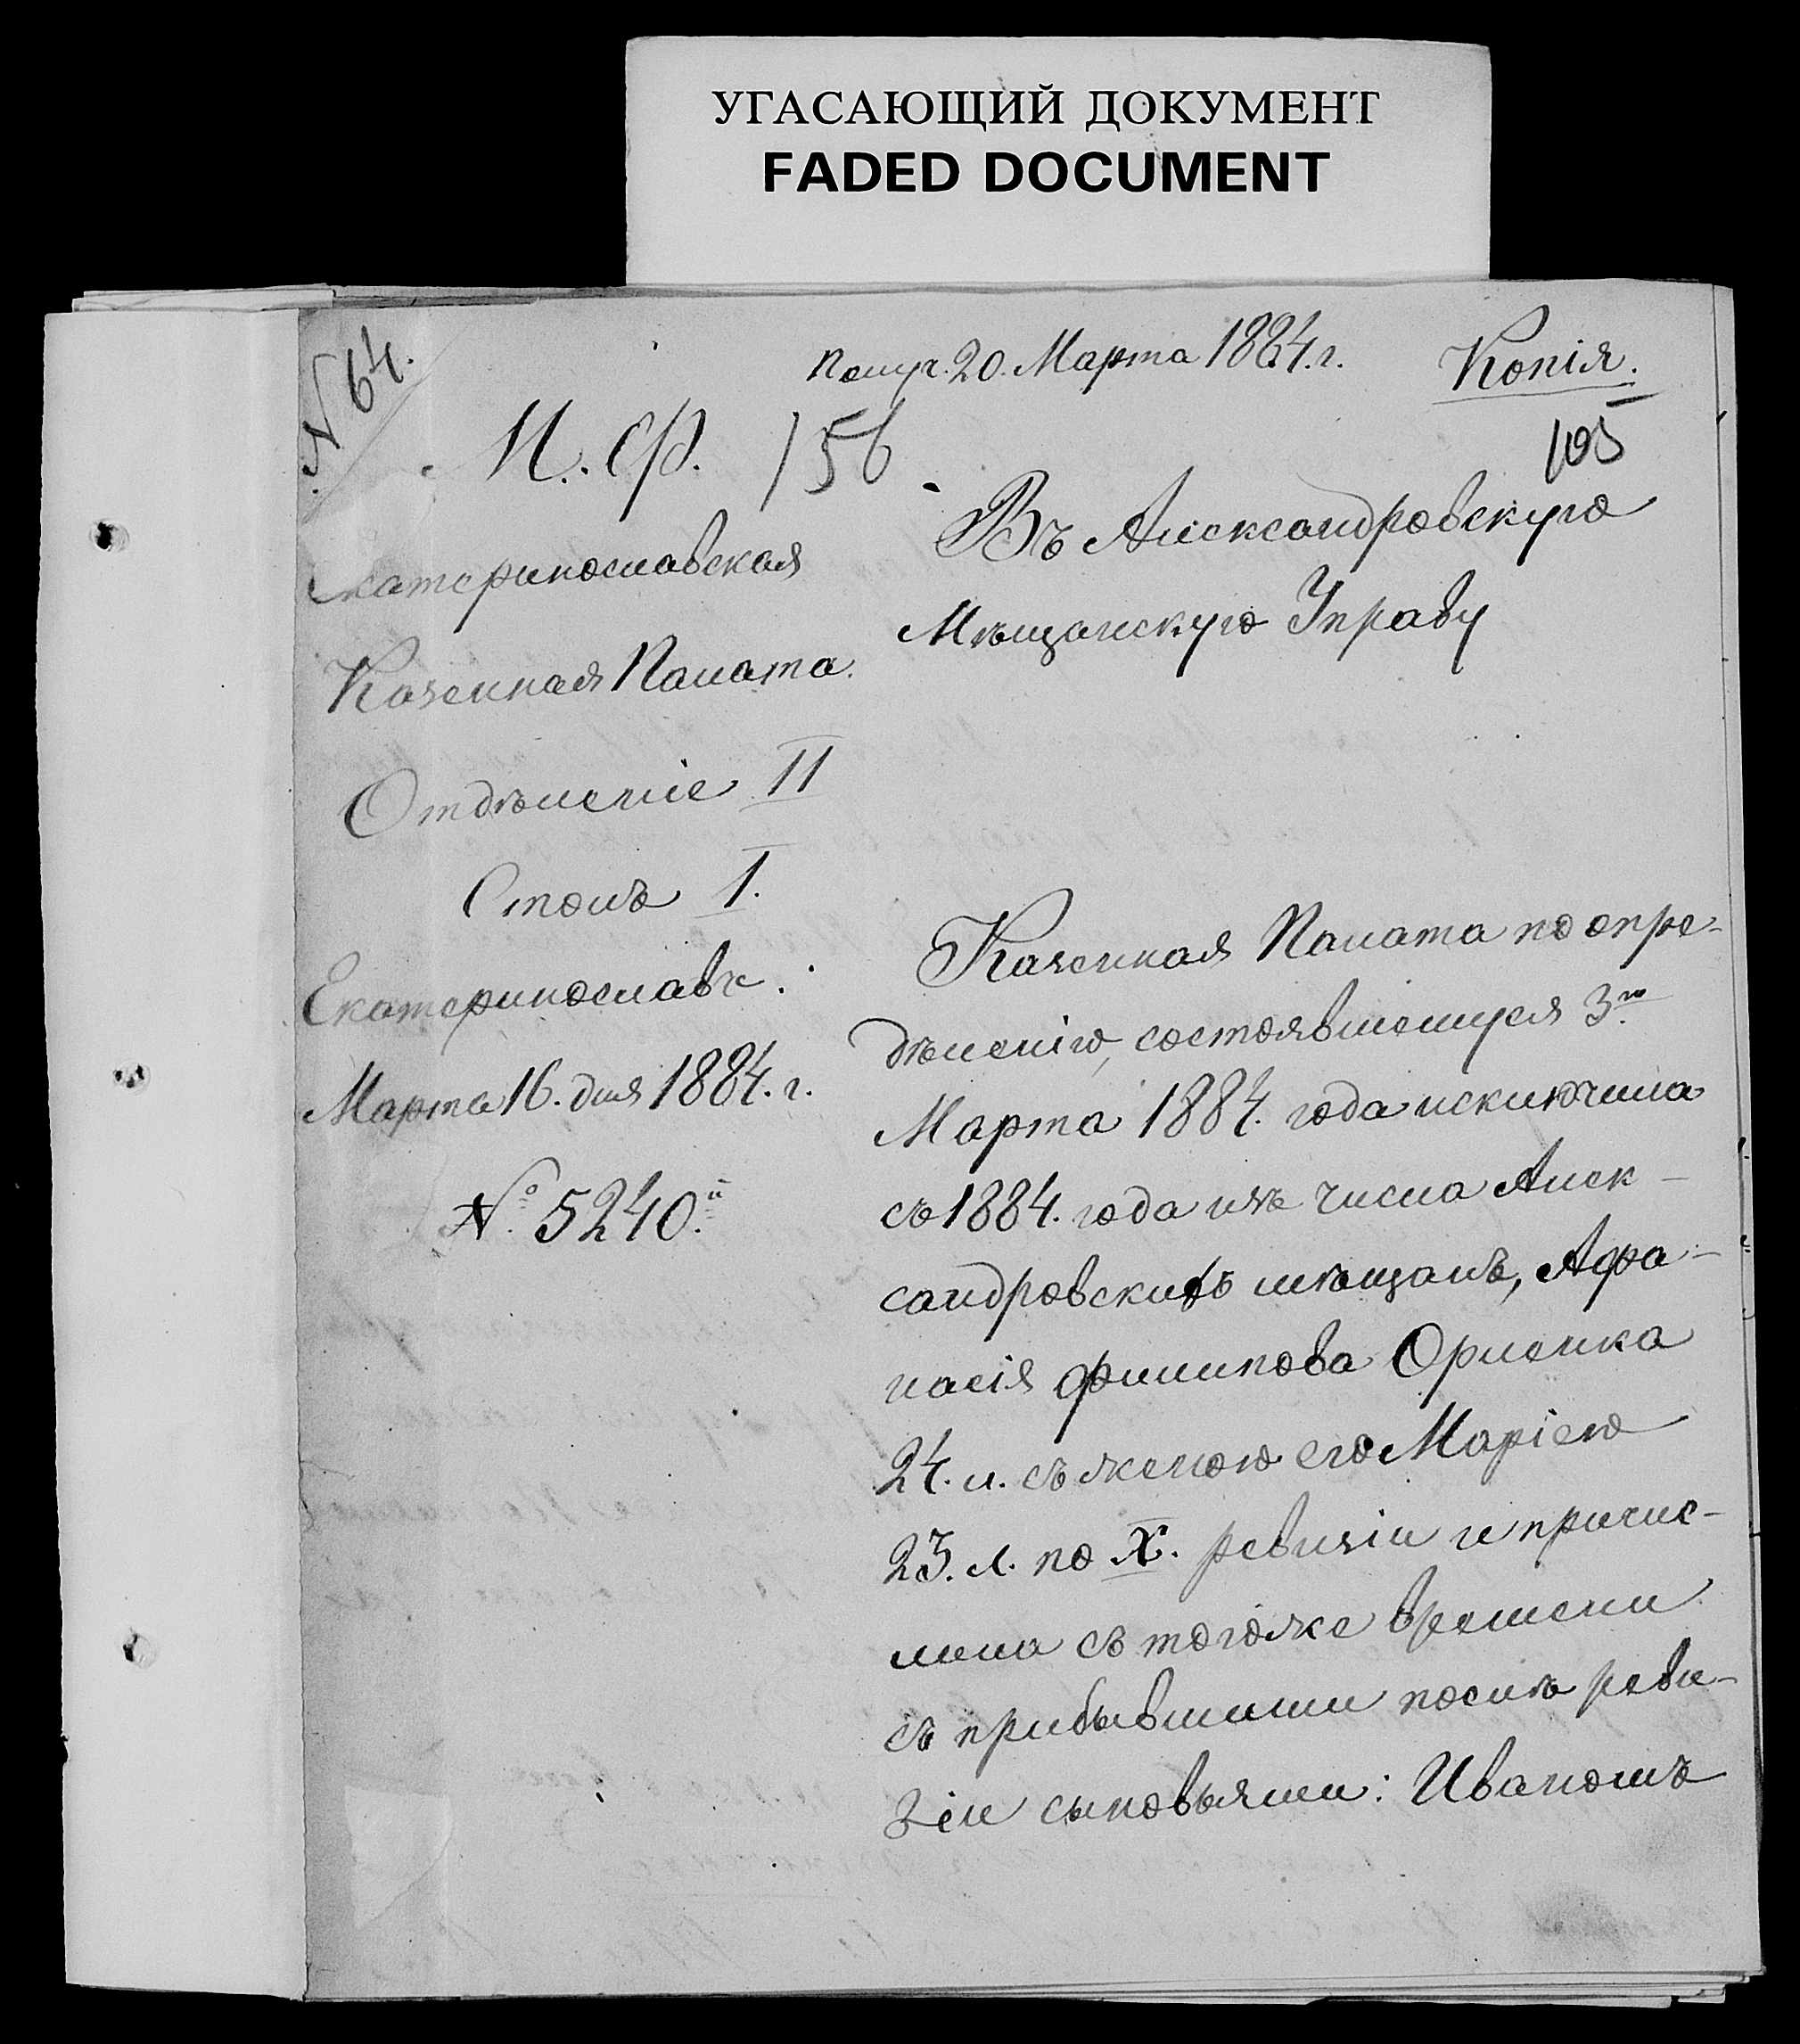 УГАСАЮЩИЙ ДОКУМЕНТ
FADED DOCUMENT
N 64.
Получ. 20. Марта 1884. г.
Копія.
105
М. Ф. 156
Екатеринославская
Казенная Палата.
Отдѣленіе II
Столъ I.
Екатеринославъ.
Марта 16. дня 1884. г.
№ 5240.
Въ Александровскую
Мѣщанскую Управу
Казенная Палата по опре-
дѣленію, состоявшемуся 3го
Марта 1884. года исключила
съ 1884. года изъ числа Алек-
сандровскихъ мѣщанъ, Афа-
насія Филипова Орленка
24. л. съ женою его Маріею
23. л. по X. ревизіи и причис-
лила съ тогоже времени
съ прибывшими послѣ реви-
зіи сыновьями: Иваномъ